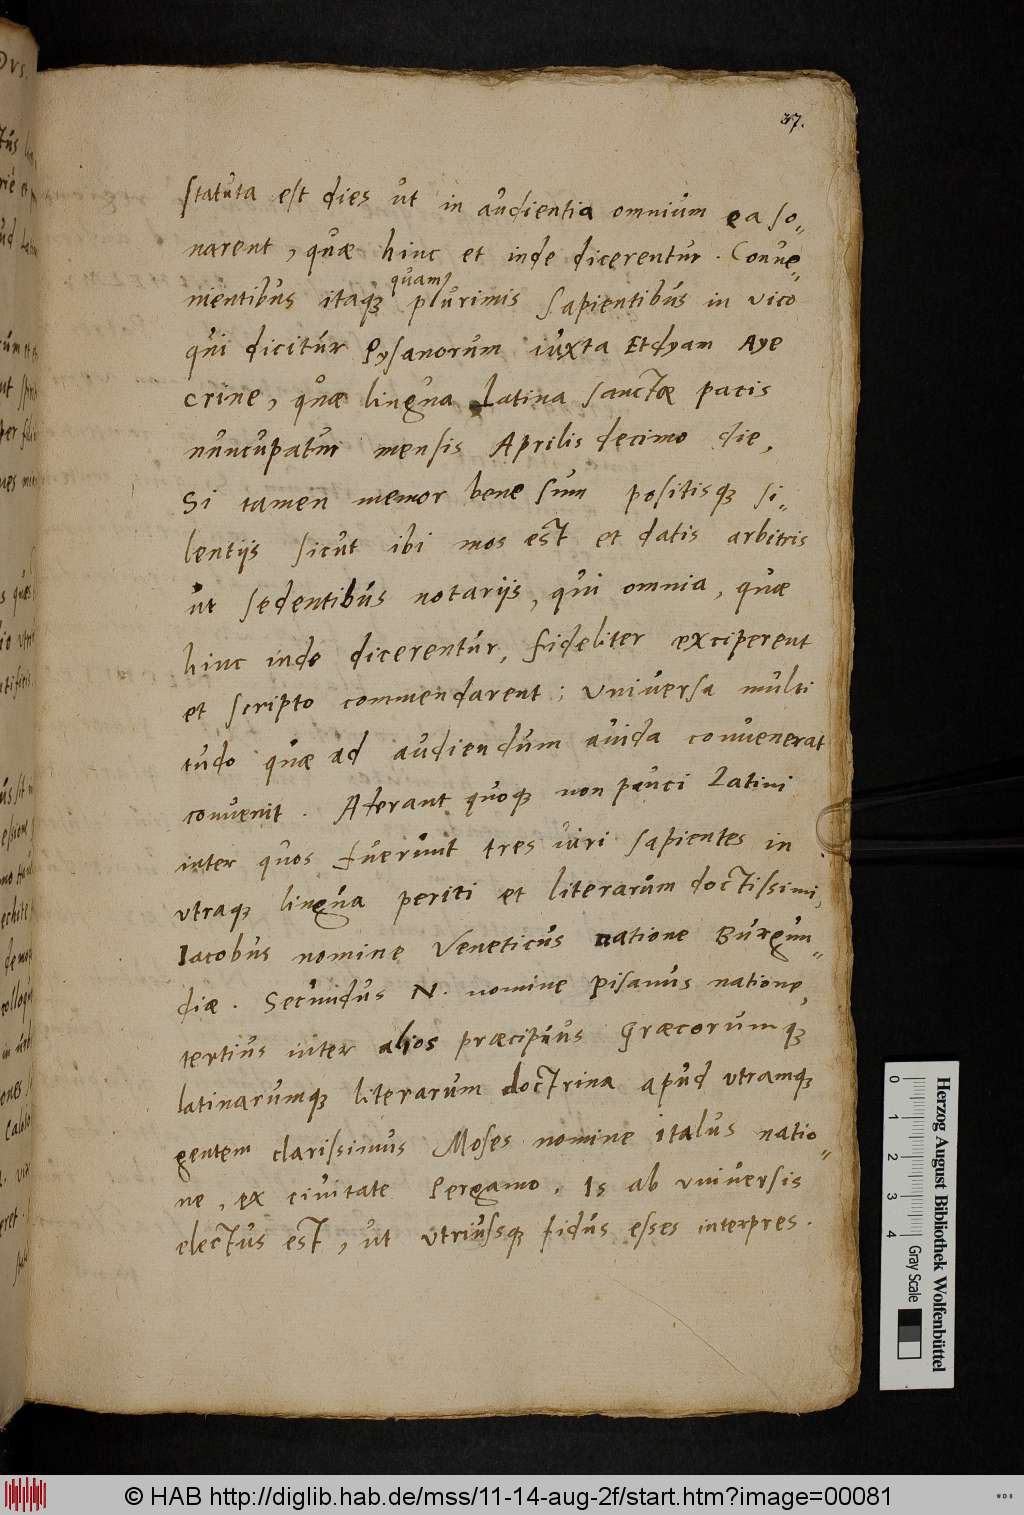 37.
statuta est dies ut in audientia omnium ea so„
narent, quæ hinc et inde dicerentur. Conue„
nientibus itaq; quam plurimis sapientibus in vico
qui dicitur Pysanorum iuxta Etdyam Aye
crine, quæ lingua Latina sanctæ pacis
nuncupatur mensis Aprilis decimo die,
Si tamen memor bene sum positisq; si„
lentijs sicut ibi mos est et datis arbitris
ut sedentibus notarijs, qui omnia, quæ
hinc inde dicerentur, fideliter exciperent
et scripto commendarent; vniuersa multi
tudo quæ ad audiendum auida conuenerat
conuenit. Aderant quoq; non pauci Latini
inter quos fuerunt tres uiri sapientes in
vtraq; lingua periti et literarum doctissimi,
Iacobus nomine Veneticus natione Burgun„
diæ. Secundus N. nomine Pisanus natione,
tertius inter alios præcipuus Græcorumq;
latinarumq; literarum doctrina apud vtramq;
gentem clarissimus Moses nomine italus natio„
ne, ex ciuitate Pergamo. Is ab vniuersis
electus est, ut vtriusq; fidus esses interpres.
Herzog August Bibliothek Wolfenbüttel
0 1 2 3 4 Gray Scale
© HAB http://diglib.hab.de/mss/11-14-aug-2f/start.htm?image=00081